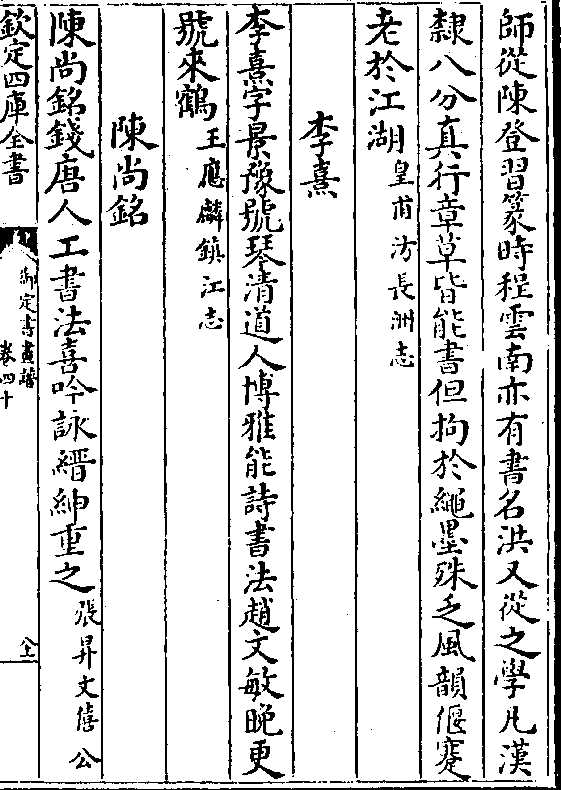 師從陳登習篆時程雲南亦有書名洪又從之學凡漢
隸八分真行章草皆能書但拘於繩墨殊乏風韻偃蹇
老於江湖皇甫汸長洲志
李熹
李熹字景豫號琴清道人博雅能詩書法趙文敏晚更
號來鶴王應麟鎮江志
陳尚銘
陳尚銘錢唐人工書法喜吟詠縉紳重之張昇文僖公
欽定四庫全書
御定書畫譜
卷四十